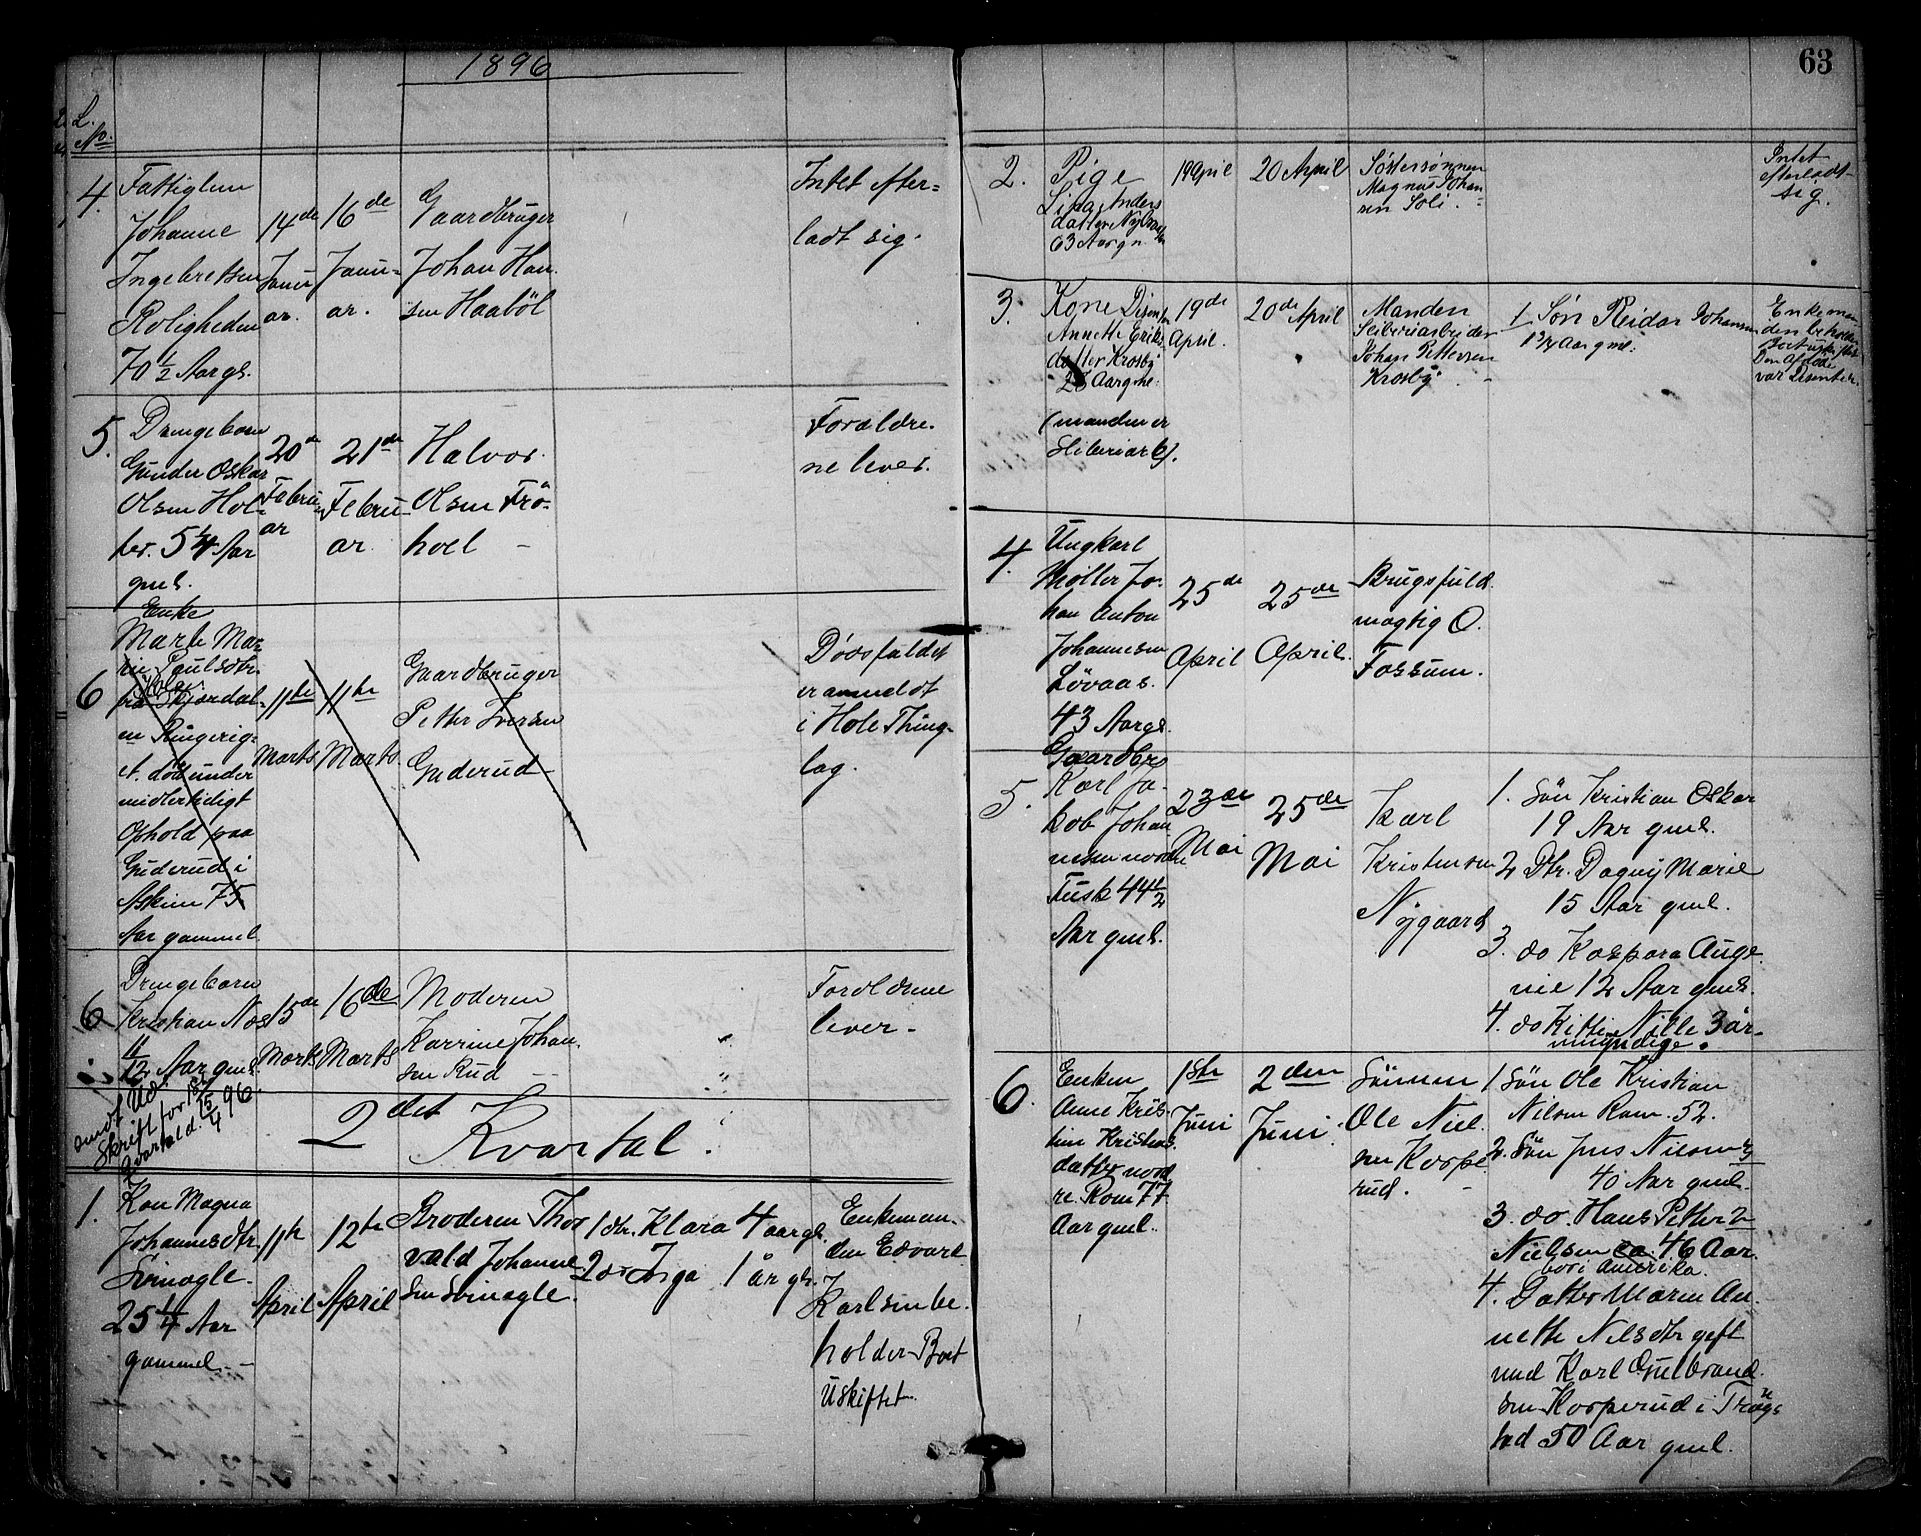 1896
63
L.
No.
4.
Fattiglem
Johanne
Ingebretsen
Roligheden
70 1/2 Aargl.
14de
Janu
ar.
16de
Janu-
ar.
Gaardbruger
Johan Han
sen Haaböl
Intet efter-
ladt sig.
5.
Drengebarn
Gunder Oskar
Olsen Hol-
ter. 5 1/4 Aar
gml.
20de
Febru
ar
21de
Febru-
ar.
Halvor
Olsen Frö-
hoel -
Forældre.
ne lever.
6
Enke
Marte Mar-
rie Paulsdtr.
fra Skjærdal-
en Ringerig-
et. död under
midlertidigt
Ophold paa
Guderud i
Askim 75
Aar gammel
11te
Marts
11te
Marts.
Gaardbruger
Petter Iversen
Guderud
Dödsfaldet
er anmeldt
i Hole Thing-
lag.
6
Drengebarn
Kristian Næs
11/12 Aar gml.
15de
Marts
16de
Marts
Moderen
Karrine Johan
sen Rud -
Foreldrene
lever -
sendt Ud-
skrift for 1ste
Kvartal d. 15/4 96.
2det Kvartal.
1.
Kon Magna
Johannesdtr.
Svinagle.
25 1/4 Aar
gammel -
11te
April
12te
April
Broderen Thor
vald Johanne
sen Svinagle.
1 dtr. Klara 4 aar gl.
2 do Inga 1 år gl.
Enkeman.
den Edvart
Karlsen be.
holder Boet
Uskiftet.
2.
Pige
Lisa Anders
datter
63 Aar gm
19 April
20 April
Söstersönnen
Magnus Johan
sen Soli.
Intet
efterladt
sig.
3.
Kone Disenter
Annette Eriks
datter Krosby
28 Aar gml:
(manden er
Sliberiarb).
19de
April.
20de April
Manden
Sliberiarbeider
Johan Pettersen
Krosby. -
1 Sön Reidar Johansen
1 3/4 Aar gml:
Enkeman
den beholder
Boet uskiftet
Den Afdöde
var Disenter.
4.
Ungkarl
Möller Jo-
han Anton
Johannesen
Lövaas.
43 Aargl.
25de
April
25de
April.
Brugsfuld
mægtig O.
Fossum.
5.
Gaardbr
Karl Ja-
kob Johan
nesen nordre
Tusk 44 1/2
Aar gml.
23de
Mai
25de
Mai
Karl
Kristensen
Nygaard
1. Sön Kristian Oskar
19 Aar gml.
2 Dtr. Dagny Marie
15 Aar gml.
3. do Kaspara Auge-
nie 12 Aar gml.
4. do Kitti Nille 3 år-
umyndige.
6.
Enken
Anne Kris-
tine Kristians
datter nord
re Rom 77
Aar gml.
1ste
Juni
2den
Juni.
Sönnen
Ole Niel
sen Korpe
rud. -
1 Sön Ole Kristian
Nilsen Rom. 52.
2. Sön Jens Nilsen
40 Aar gml.
3. do. Hans Petter
Nielsen ca. 46 Aar
bor i Amerika.
4. Datter Maren An-
nette Nilsdtr gift
med Karl Gulbrand-
sen Korperud i Trøgs
tad 50 Aar gml.